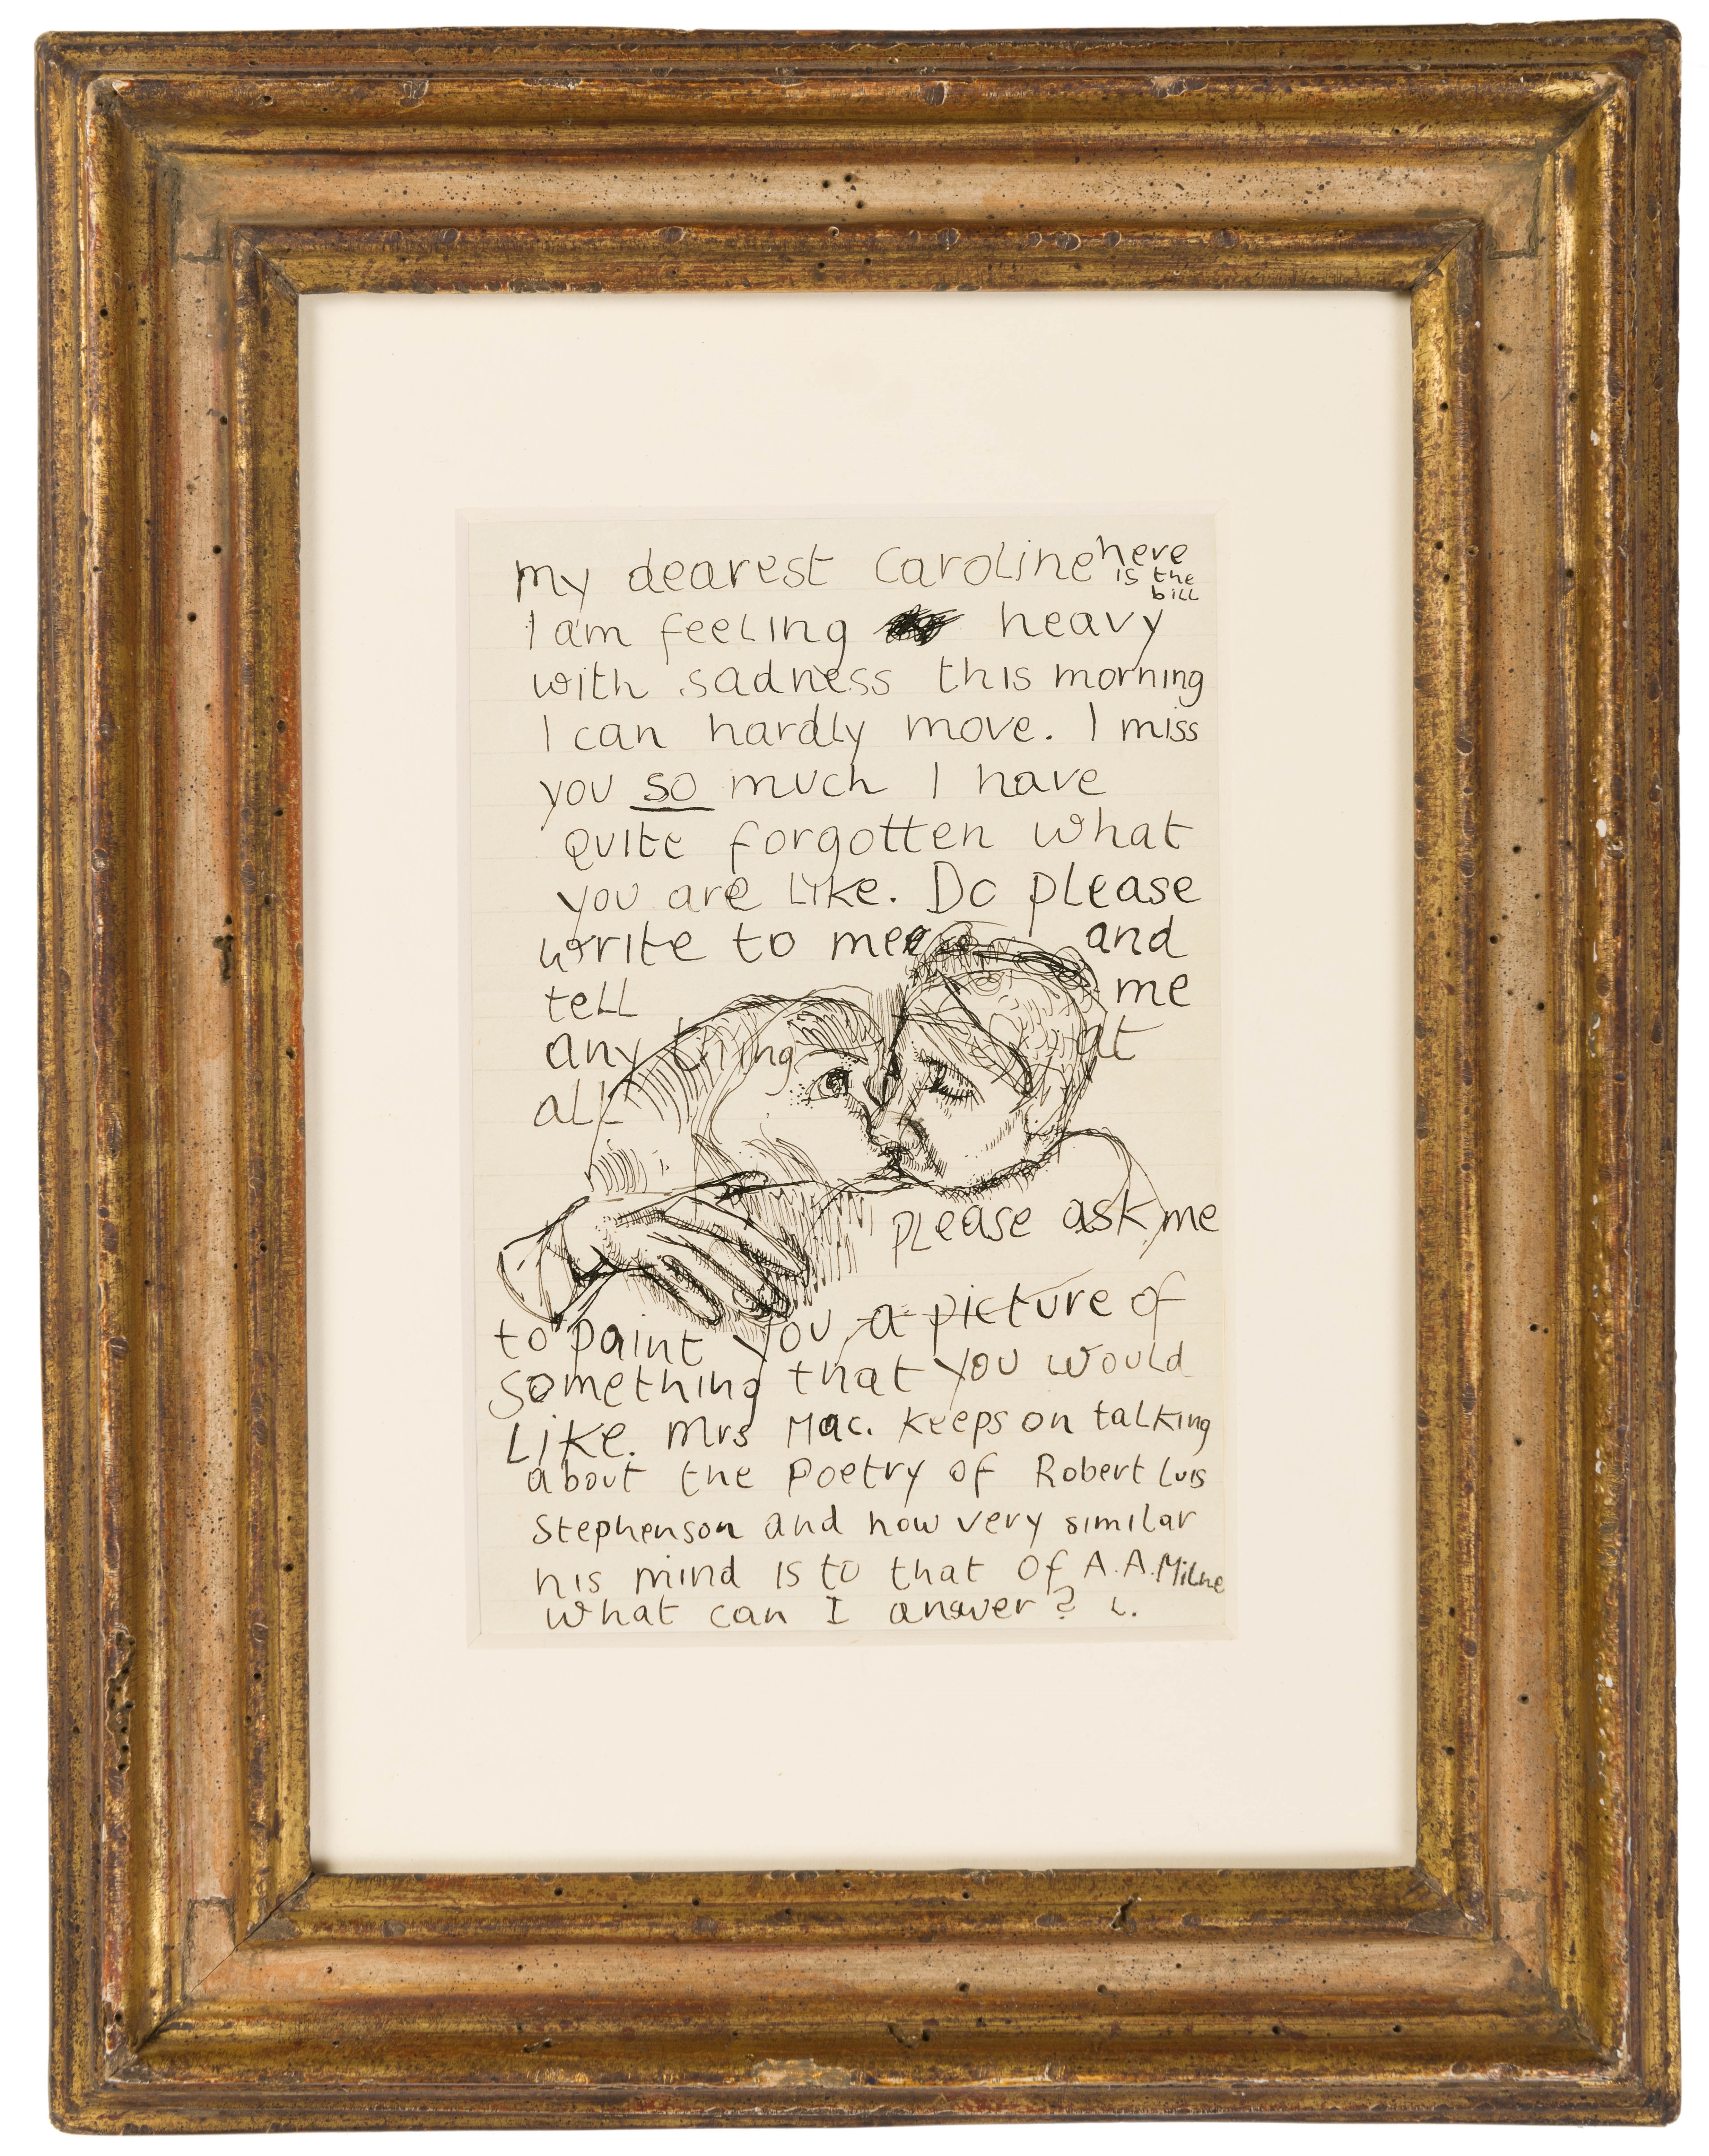 my dearest Caroline here
is the
bill
I am feeling heavy
with sadness this morning
I can hardly move. I miss
you so much I have
quite forgotten what
you are like. Do please
write to me and
tell me
any thing at
all
please ask me
to paint you a picture of
something that you would
like. Mrs Mac. keeps on talking
about the poetry of Robert Luis
Stephenson and how very similar
his mind is to that of A.A. Milne
what can I answer? L.